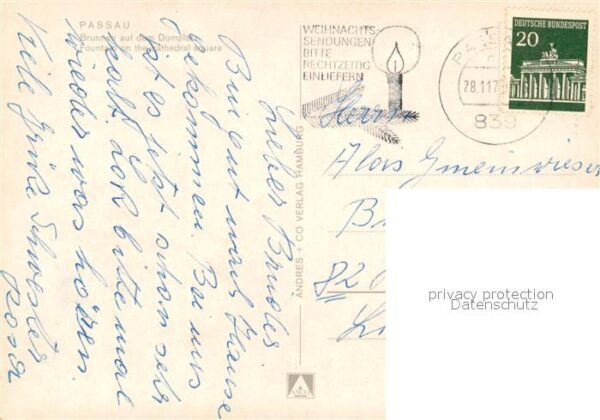 PASSAU
Brunnen auf dem Domplatz
Fountain on the cathedral square
Lieber Bruder
Bin gut nach Hause
gekommen. Bei uns
ist es jetzt schon sehr
kalt. daß bitte mal
wieder was hören.
Viele Grüße Schwester
Rosa
ANDRES + CO VERLAG HAMBURG
WEIHNACHTS-
SENDUNGEN
BITTE
RECHTZEITIG
EINLIEFERN
PA
28.11.17
839
DEUTSCHE BUNDESPOST
20
Herrn
Alois Gmeinwieser
B
82
privacy protection
Datenschutz